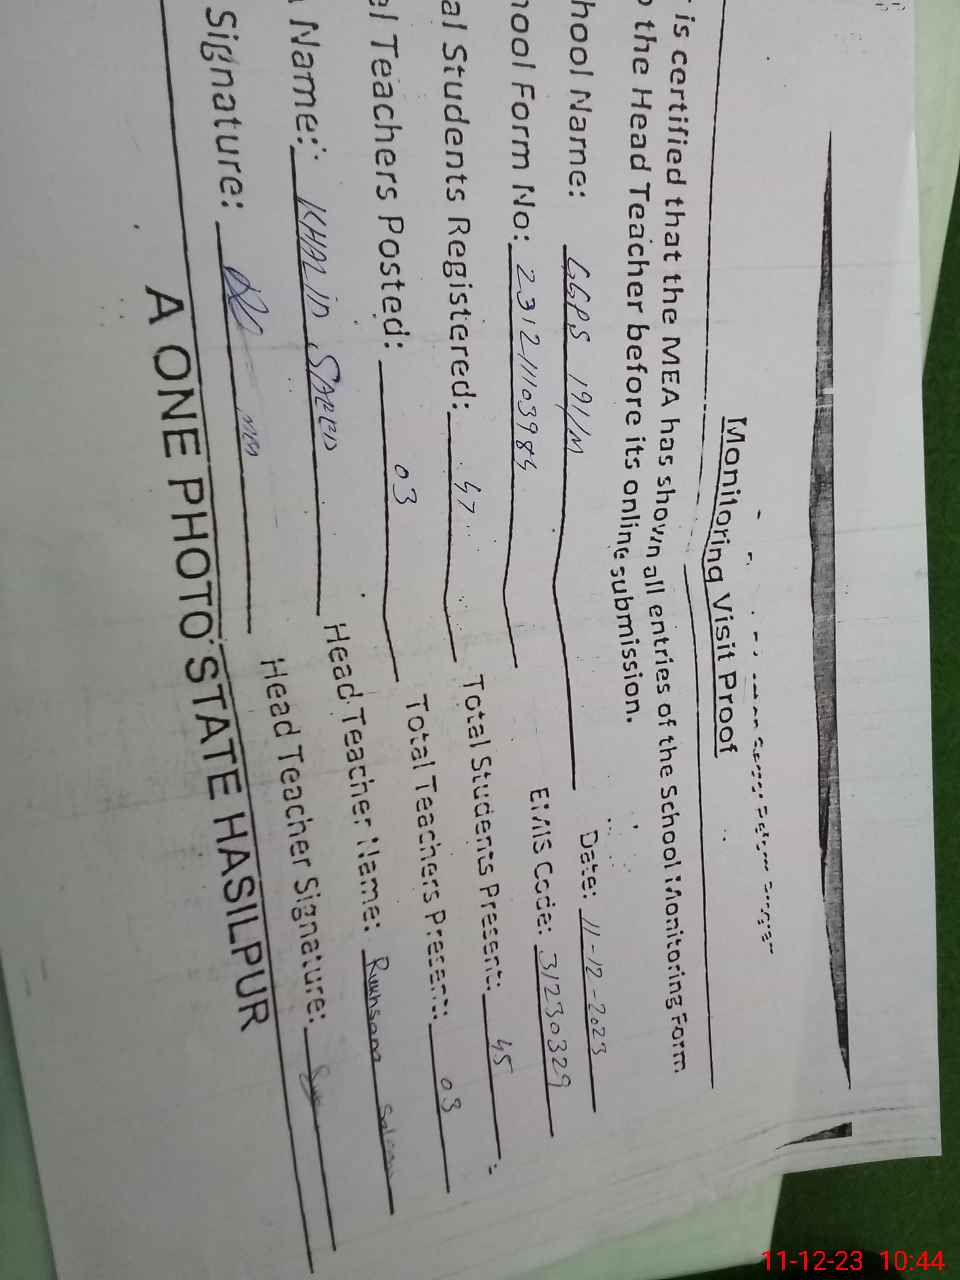 Monitoring Visit Proof
is certified that the MEA has shown all entries of the School Monitoring Form
the Head Teacher before its online submission.
hool Name: GGPS 191/M Date: 11-12-2023
hool Form No: 231211103984 EMIS Code: 31230329
al Students Registered: 47 Total Students Present: 45
el Teachers Posted: 03 Total Teachers Present: 03
Name: KHALID SAEED Head Teacher Name: Rukhsana
Signature: Head Teacher Signature:
A ONE PHOTO STATE HASILPUR
11-12-23 10:44